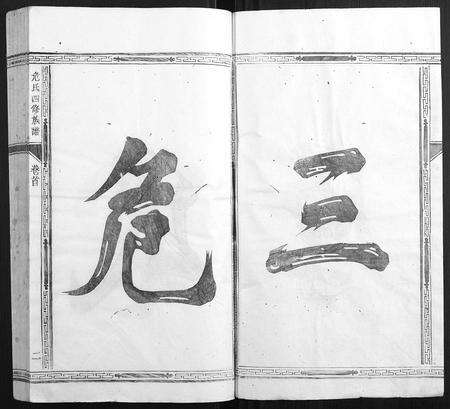 三
危
危氏四修族譜
卷首
二